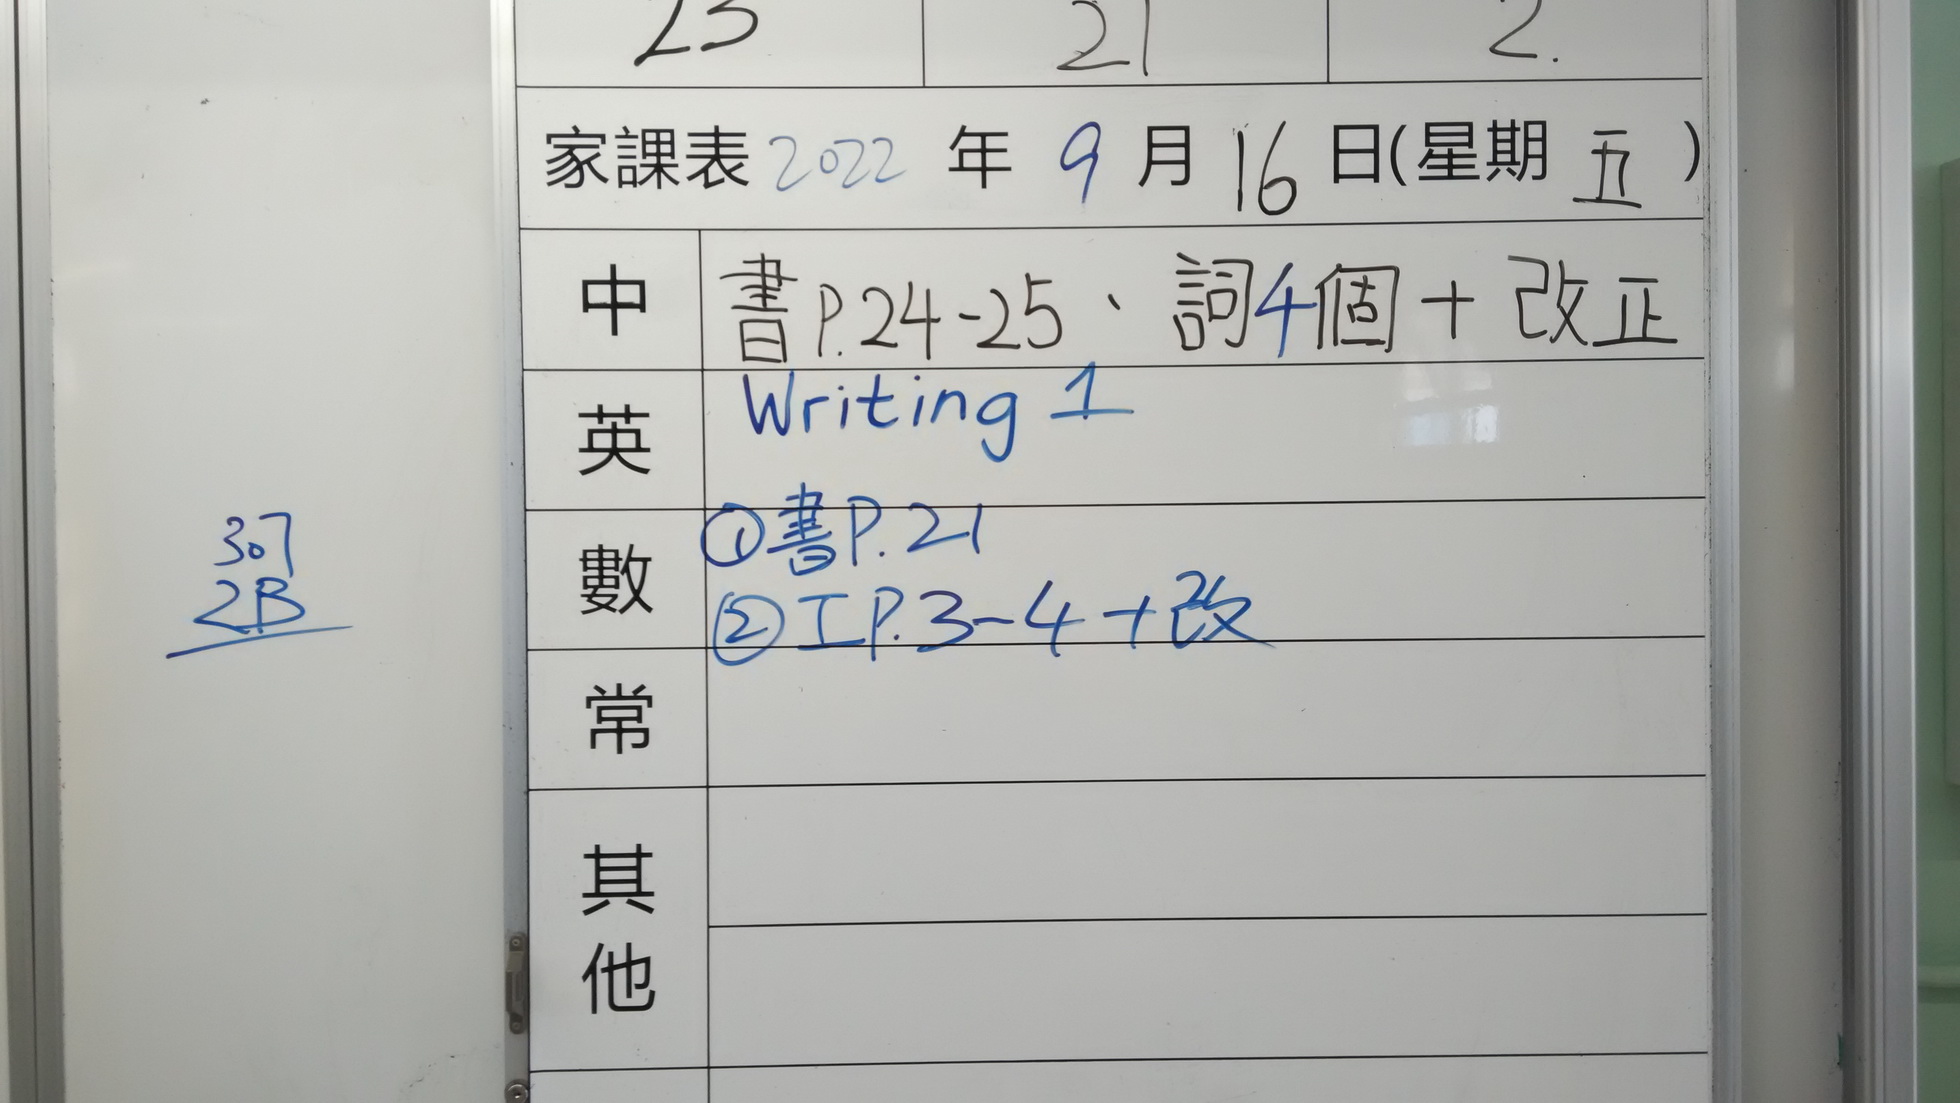 23 21 2.
家課表 2022 年 9 月 16 日(星期 五 )
中 書P.24-25、詞4個+改正
英 Writing 1
數 ①書P.21
②工P.3-4+改
常
其他
307
2B